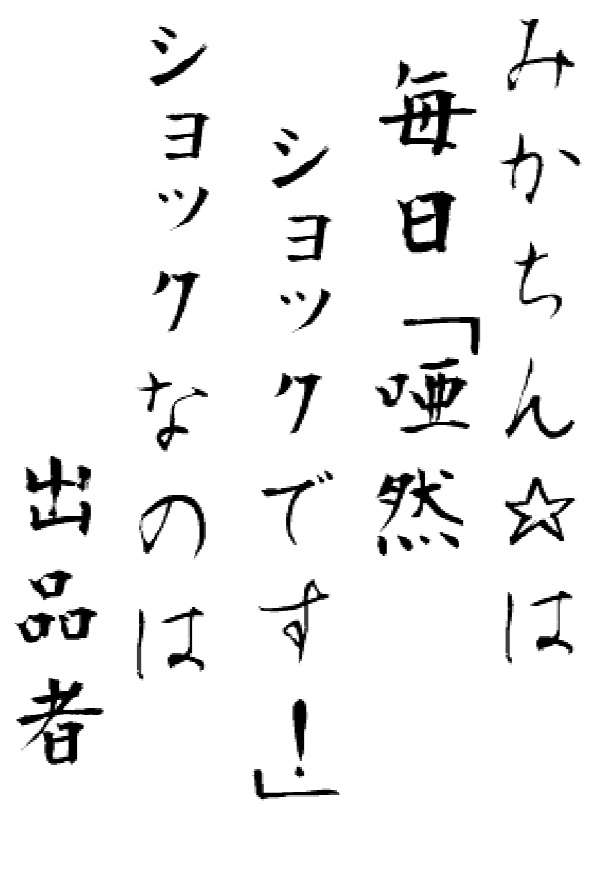 みかちん☆は
毎日「唖然
ショックです！」
ショックなのは
出品者